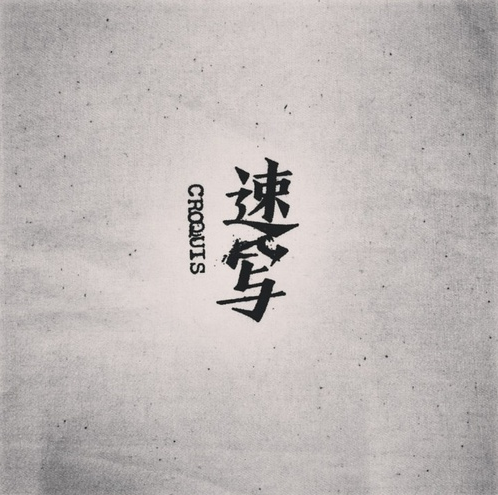 速写
CROQUIS